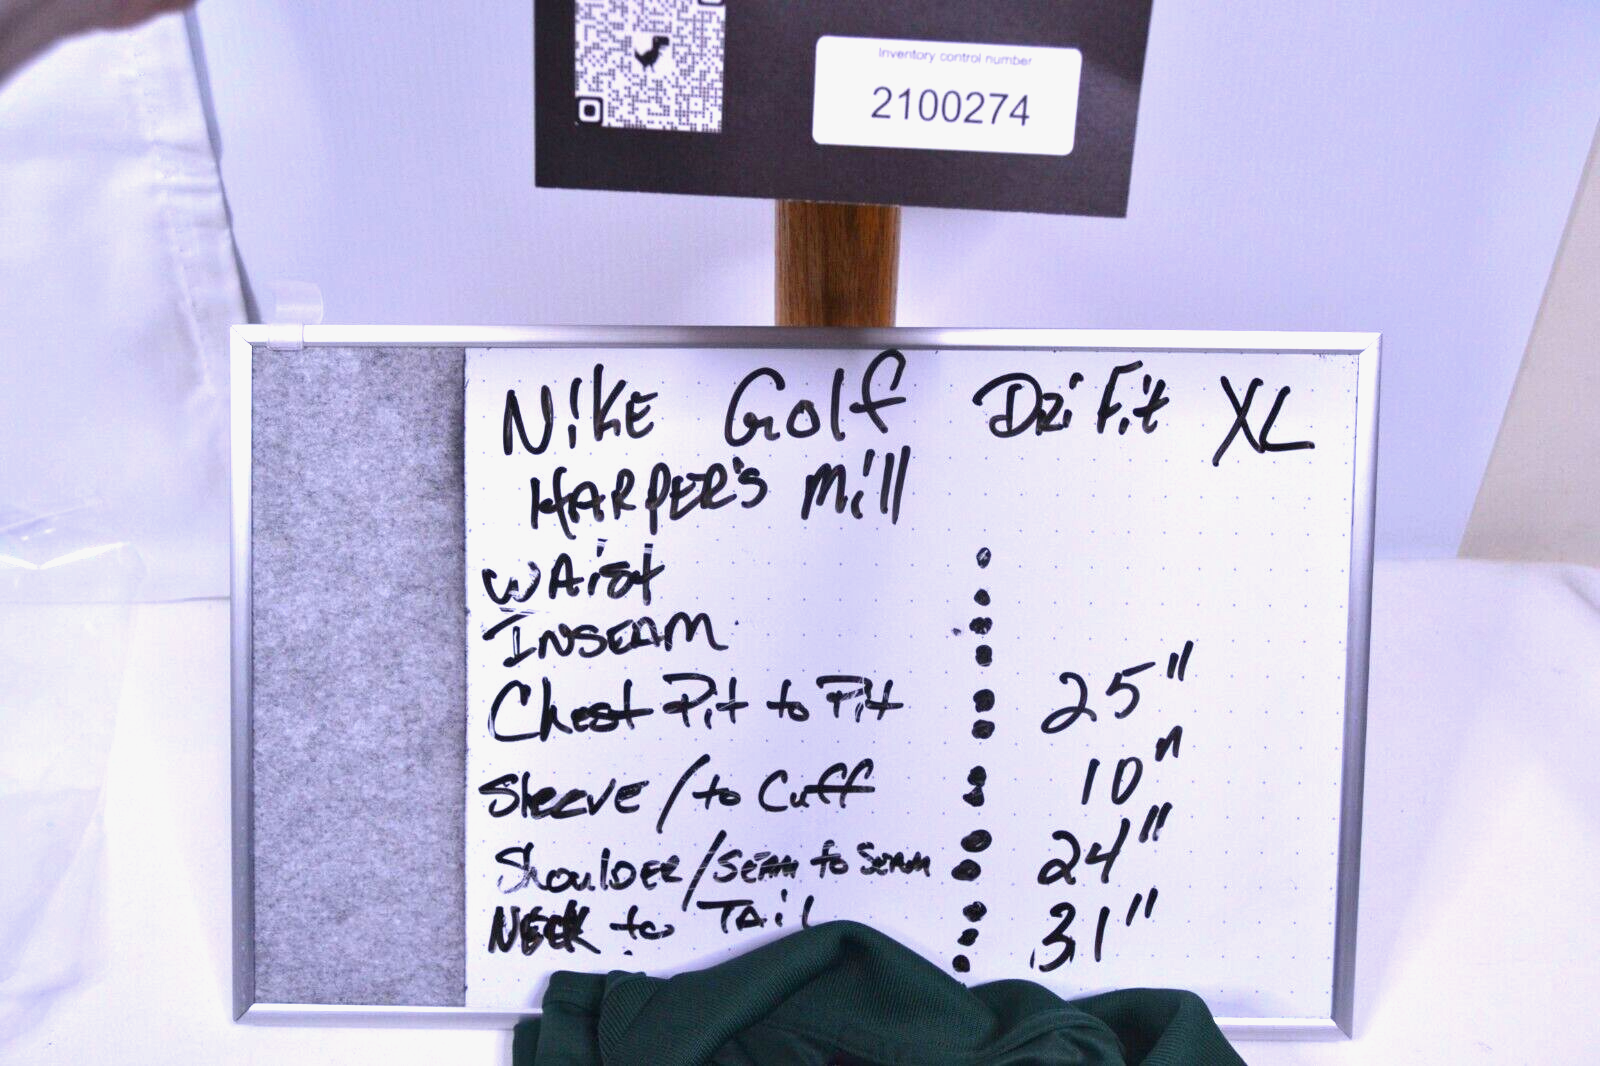 Inventory control number
2100274
NiKE Golf Dri Fit XL
HARPER's Mill
WAist :
INSEAM :
Chest Pit to Pit : 25"
Sleeve / to Cuff : 10"
ShoulDER / SEAM to SEAM : 24"
NECK to TAil : 31"